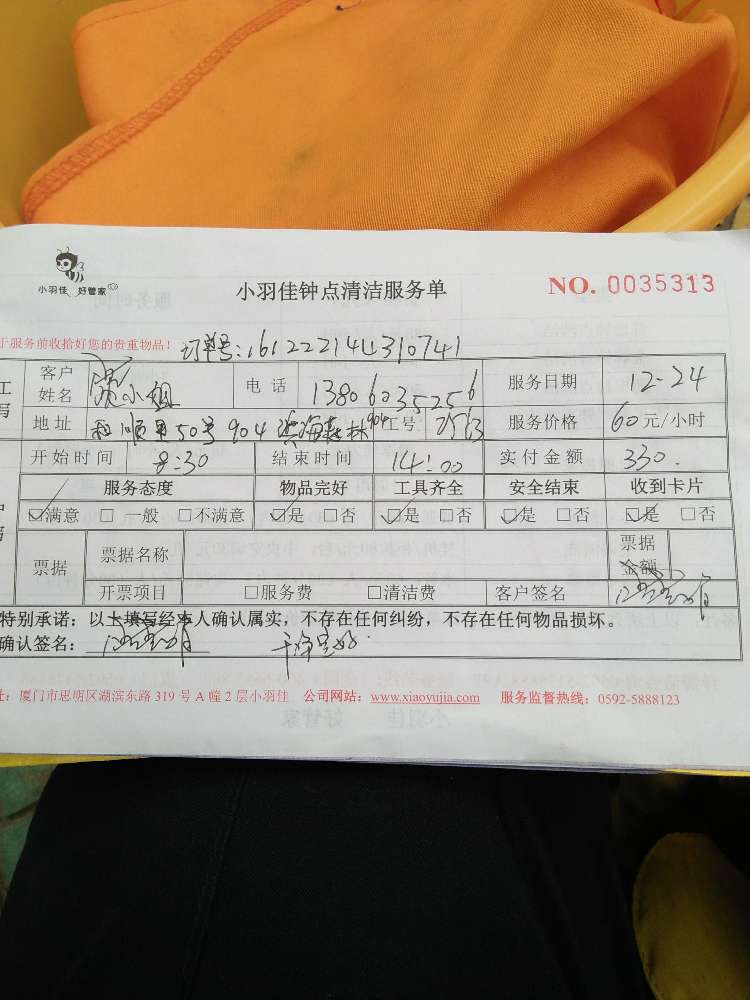 小羽佳 好管家
小羽佳钟点清洁服务单
NO. 0035313
于服务前收拾好您的贵重物品!
订单号:161222144310741
客户姓名 小姐 电话 13806035256 服务日期 12-24
地址 和顺里50号904 滨海森林904 工号 服务价格 60元/小时
开始时间 8:30 结束时间 14:00 实付金额 330.
服务态度 物品完好 工具齐全 安全结束 收到卡片
☑满意 □一般 □不满意 ☑是 □否 ☑是 □否 ☑是 □否 ☑是 □否
票据 票据名称 票据金额
开票项目 □服务费 □清洁费 客户签名
特别承诺:以上填写经本人确认属实,不存在任何纠纷,不存在任何物品损坏。
确认签名:
址:厦门市思明区湖滨东路319号A幢2层小羽佳 公司网站:www.xiaoyujia.com 服务监督热线:0592-5888123